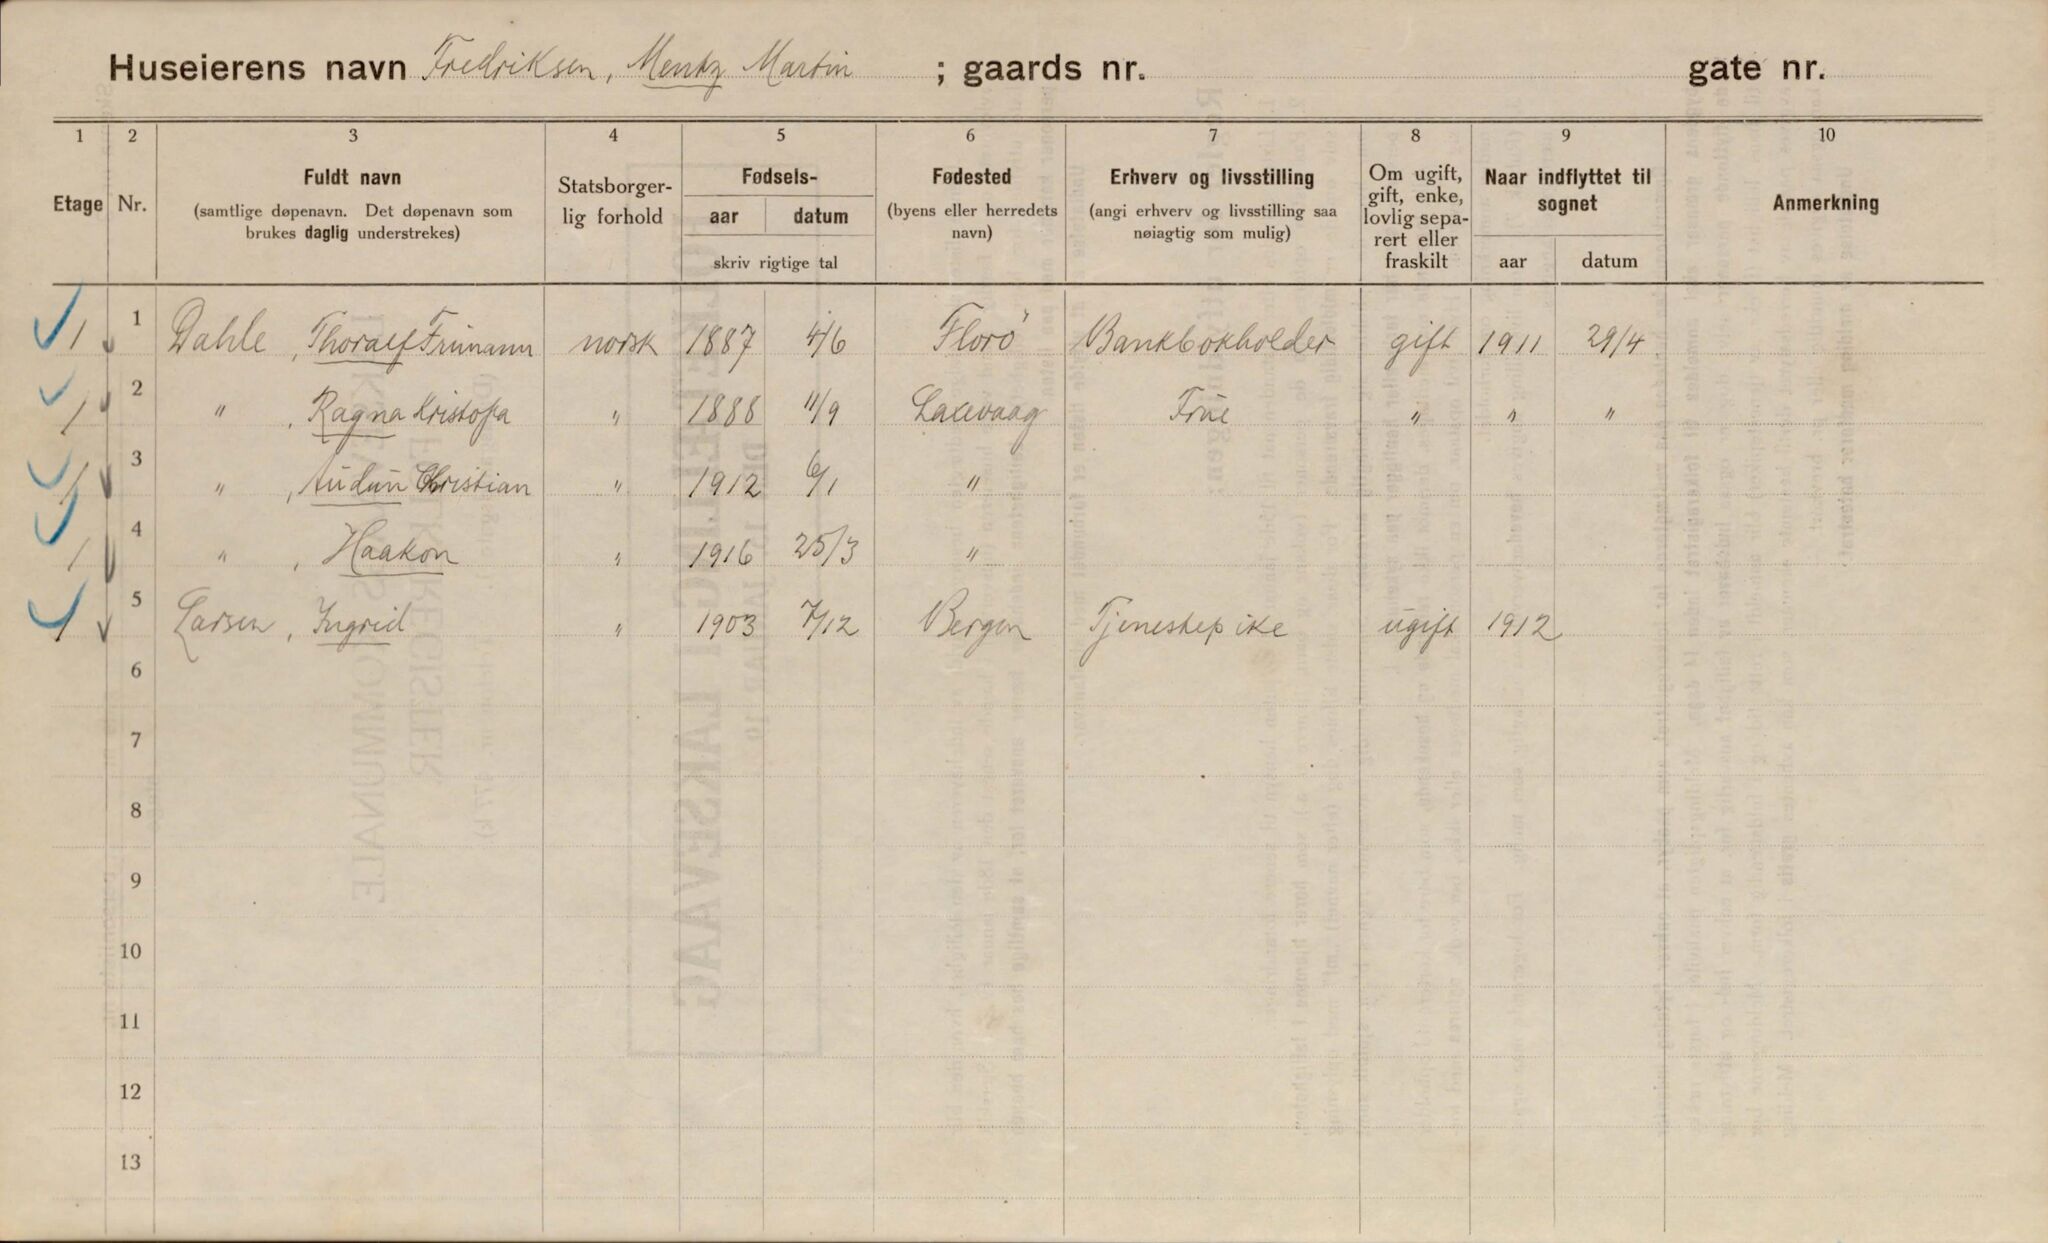 Huseierens navn Fredriksen, Mentz Martin ; gaards nr. gate nr.
1 2 3 4 5 6 7 8 9 10
Etage Nr. Fuldt navn (samtlige døpenavn. Det døpenavn som brukes daglig understrekes) Statsborgerlig forhold Fødsels- aar datum skriv rigtige tal Fødested (byens eller herredets navn) Erhverv og livsstilling (angi erhverv og livsstilling saa nøiagtig som mulig) Om ugift, gift, enke, lovlig separert eller fraskilt Naar indflyttet til sognet aar datum Anmerkning
1 1 Dahle, Thoralf Frimann norsk 1887 4/6 Florö Bankbokholder gift 1911 29/4
1 2 " , Ragna Kristofa " 1888 11/9 Laxevaag Frue " " "
1 3 " , Audun Christian " 1912 6/1 "
1 4 " , Haakon " 1916 25/3 "
1 5 Larsen, Ingrid " 1903 7/12 Bergen Tjenestepike ugift 1912
6
7
8
9
10
11
12
13